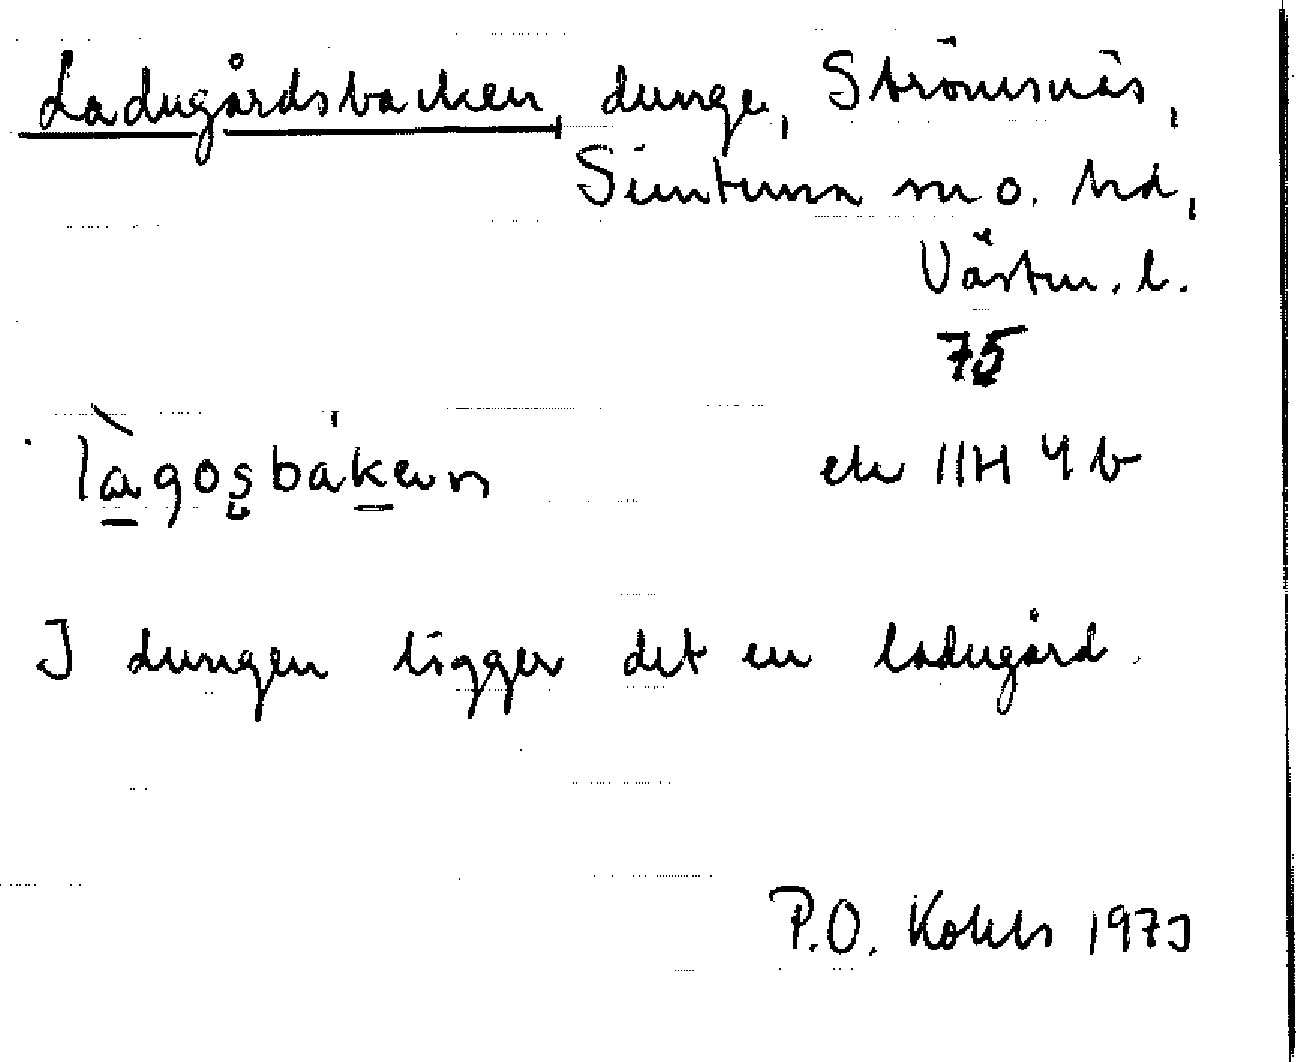 Ladugårdsbacken, dunge, Strömsnäs,
Simtuna sn o. hd,
Västm. l.
75
làgosbákən ek 11H 4b
I dungen ligger det en ladugård.
P.O. 1973